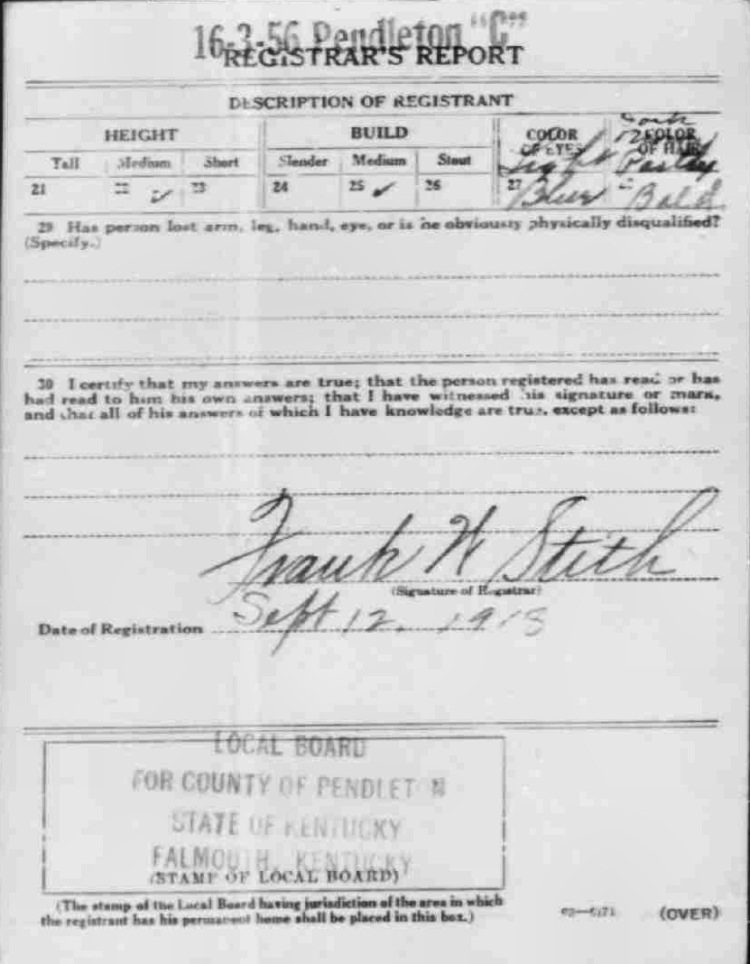 16-3-56 Pendleton "C"
REGISTRAR'S REPORT
DESCRIPTION OF REGISTRANT
HEIGHT BUILD COLOR OF EYES COLOR OF HAIR
Tall Medium Short Slender Medium Stout Light Dark Partly
21 22 ✓ 23 24 25 ✓ 26 27 Blue Bald
29 Has person lost arm, leg, hand, eye, or is he obviously physically disqualified?
(Specify.)
30 I certify that my answers are true; that the person registered has read or has
had read to him his own answers; that I have witnessed his signature or mark,
and that all of his answers of which I have knowledge are true, except as follows:
Frank W Stith
(Signature of Registrar)
Date of Registration Sept 12, 1918
LOCAL BOARD
FOR COUNTY OF PENDLET N
STATE OF KENTUCKY
FALMOUTH, KENTUCKY
(STAMP OF LOCAL BOARD)
(The stamp of the Local Board having jurisdiction of the area in which
the registrant has his permanent home shall be placed in this box.)
(OVER)